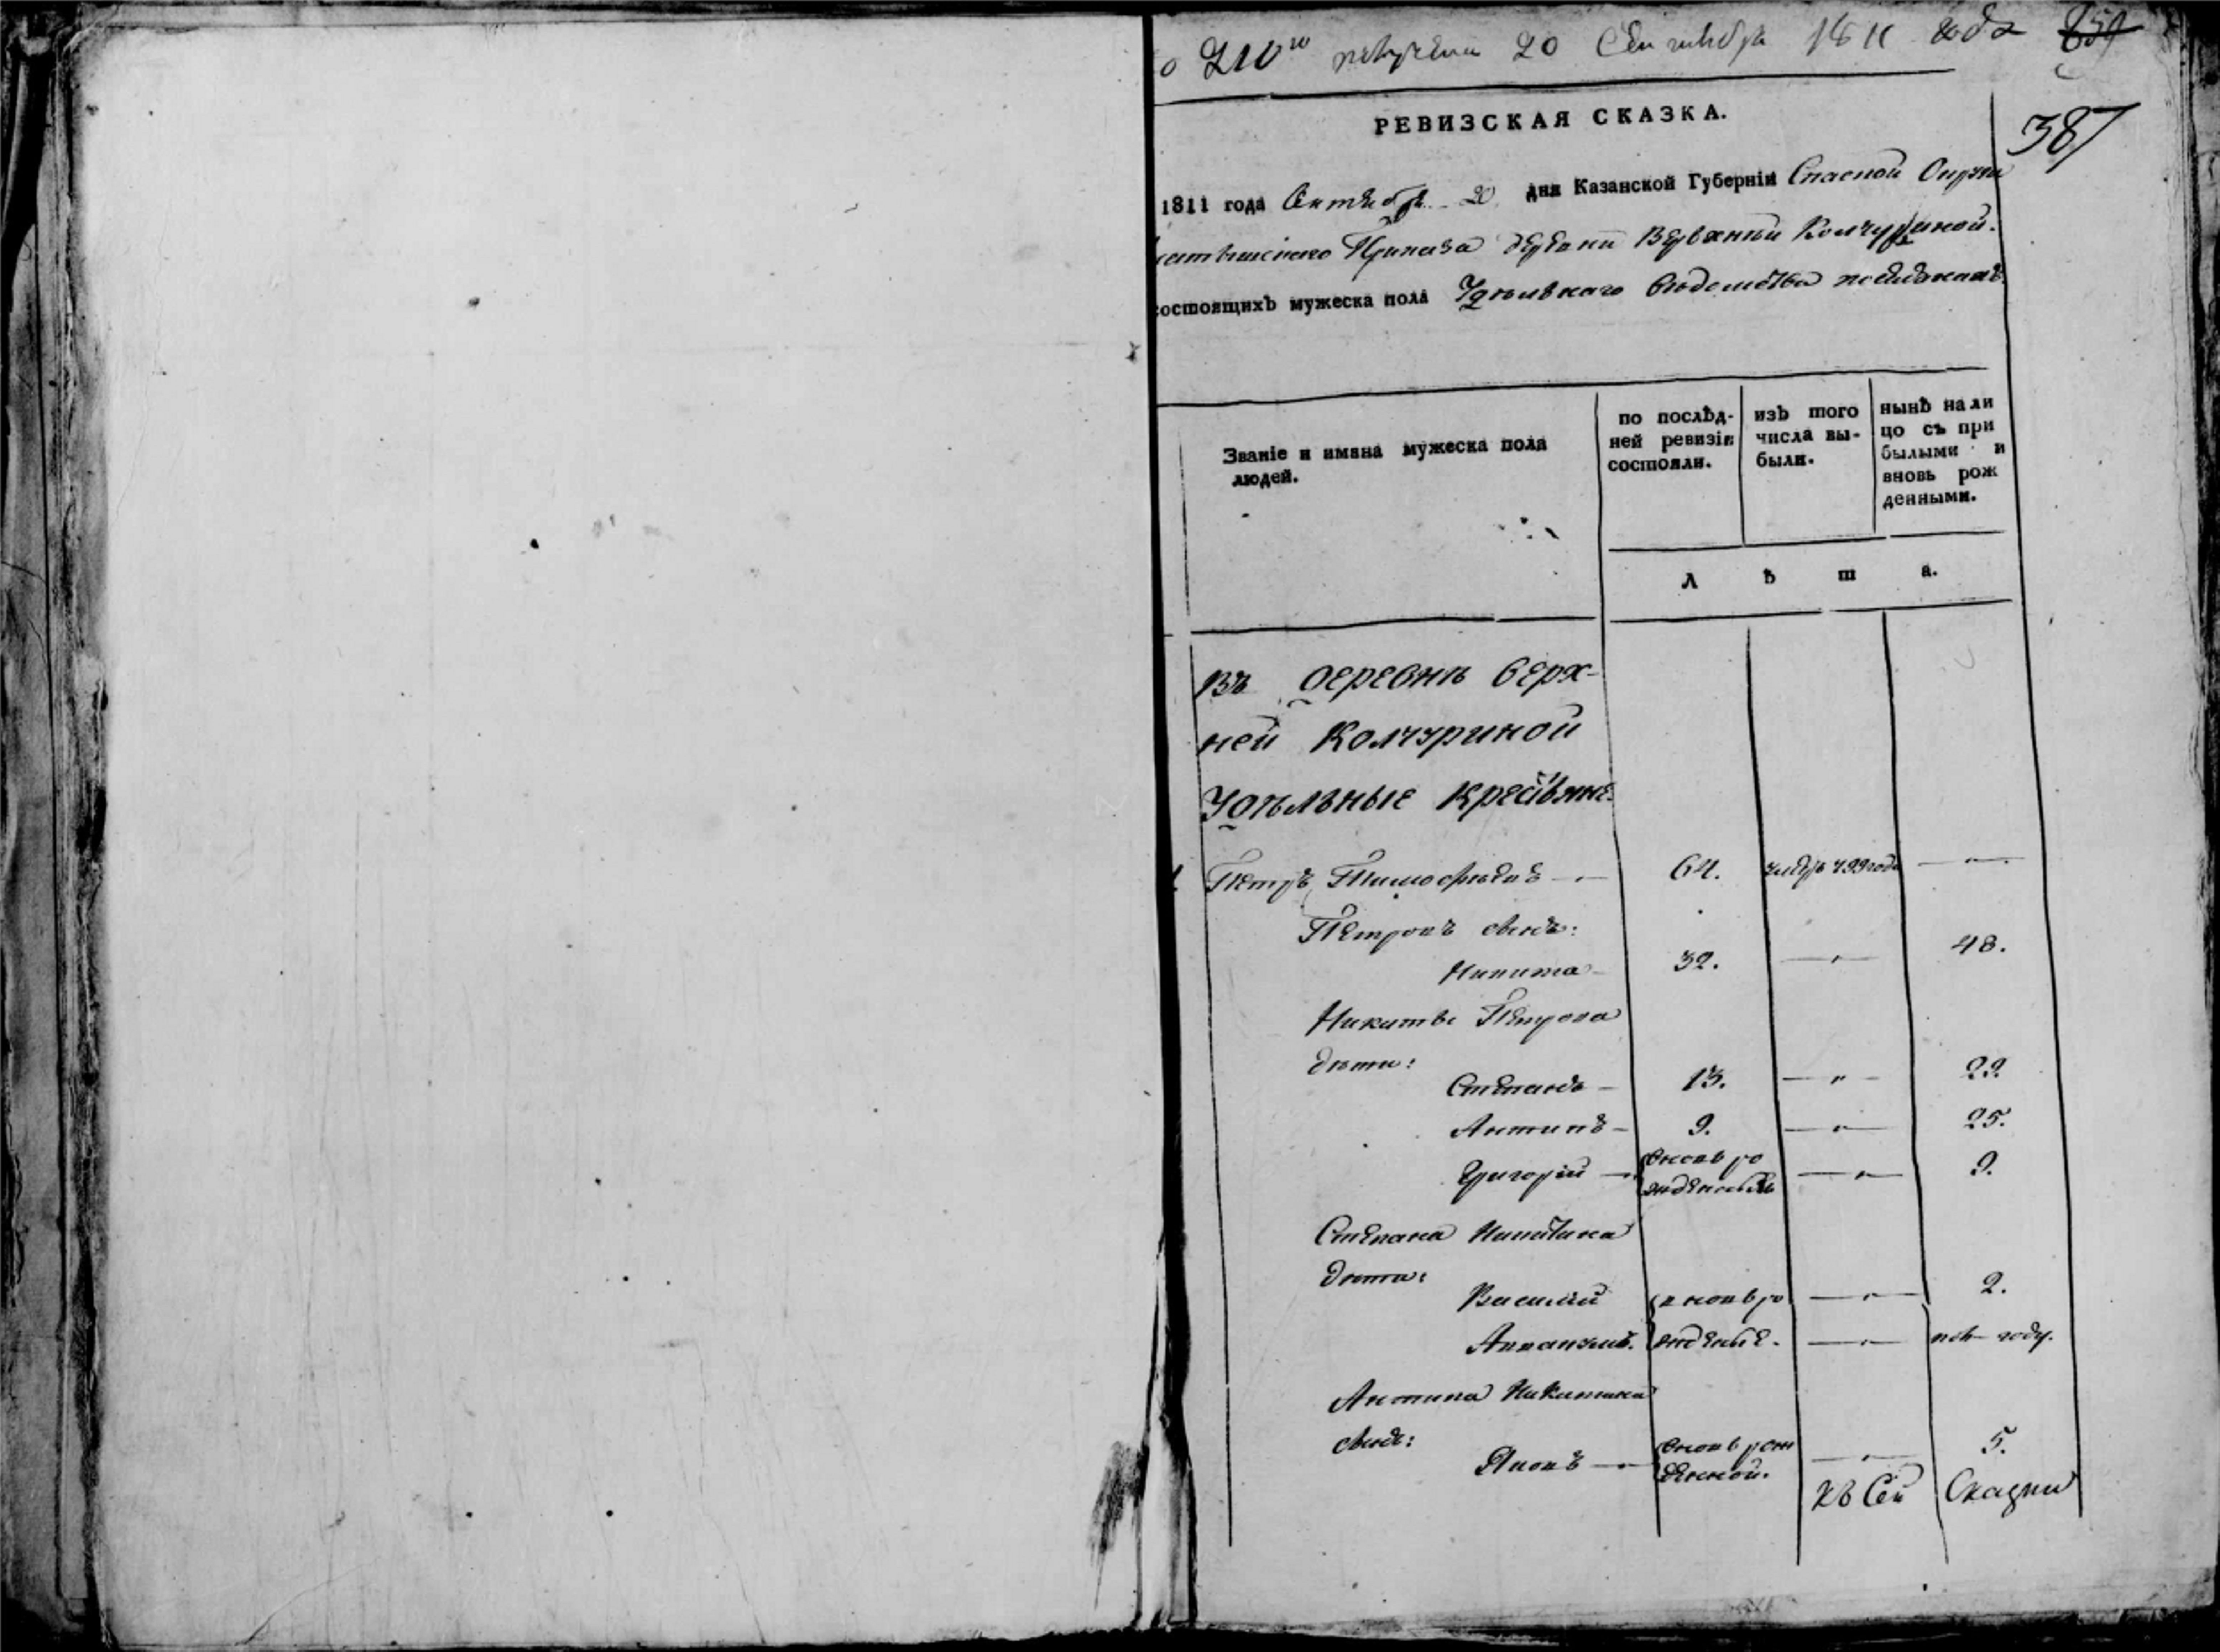 210го получена 20 Сентября 1811 года 859
387
РЕВИЗСКАЯ СКАЗКА.
1811 года Сентября 20 дня Казанской Губерніи Спаской Округи
Приказа деревни Верхнѣй Колчуриной.
состоящихъ мужеска пола Удѣльнаго вѣдомства поселянахъ.
Званіе и имяна мужеска пола людей.
по послѣд-
ней ревизіи
состояли.
изъ того
числа вы-
были.
нынѣ на ли
цо съ при
былыми и
вновь рож
денными.
Л ѣ т а.
Въ деревнѣ верх-
ней Колчуриной
Удѣльные крестьяне
1 Петръ Тимофѣевъ — 64. умеръ 799 года — " —
Петровъ сынъ:
Никита — 32. — " — 48.
Никиты Петрова
дѣти:
Степанъ — 13. — " — 29.
Антипъ — 9. — " — 25.
Григорій — вновь ро — " — 9.
жденный
Степана Никитина
дѣти:
Василій вновь ро — " — 2.
жденые. — " — году.
Антипа Никитина
сынъ:
Яковъ — вновь рож — " — 5.
денной.
Къ сей Скаски